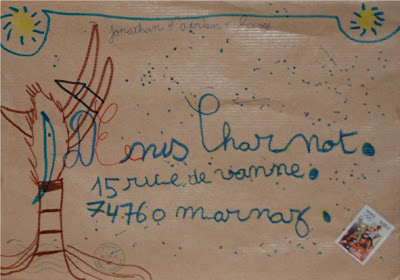 Jonathan &
Denis Charnot.
15 rue de vanne.
74760 marnaz.